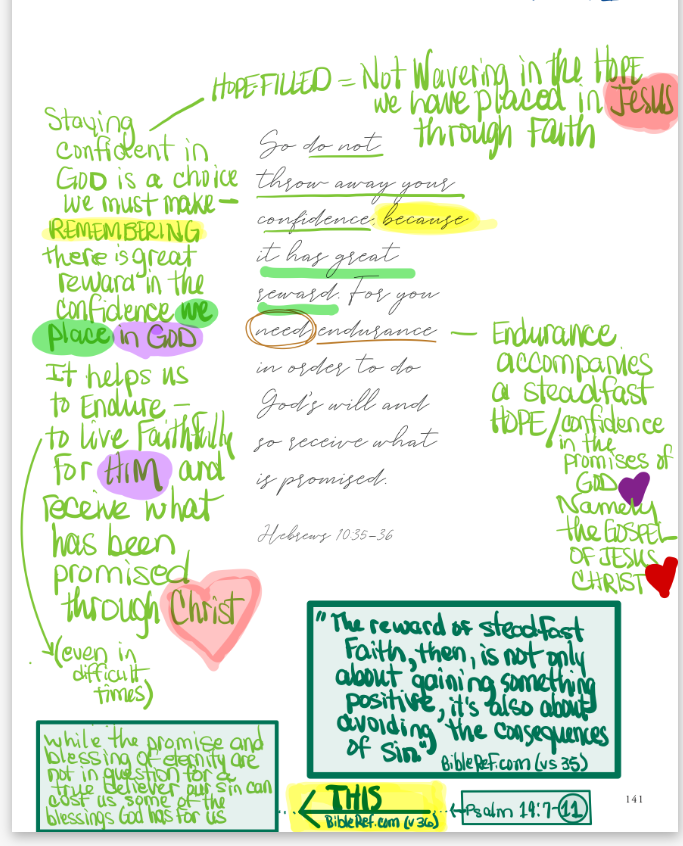 HOPEFILLED = Not Wavering in the HOPE
we have placed in JESUS
through Faith
Staying
confident in
GOD is a choice
we must make —
REMEMBERING
there is great
reward in the
confidence we
place in GOD
It helps us
to Endure —
to live Faithfully
For HIM and
receive what
has been
promised
through Christ
(even in
difficult
times)
So do not
throw away your
confidence, because
it has great
reward. For you
need endurance
in order to do
God's will and
so receive what
is promised.
Hebrews 10:35-36
— Endurance
accompanies
a steadfast
HOPE/confidence
in the
promises of
GOD
Namely
the GOSPEL
OF JESUS
CHRIST
"The reward of steadfast
Faith, then, is not only
about gaining something
positive, it's also about
avoiding the consequences
of sin."
BibleRef.com (vs 35)
while the promise and
blessing of eternity are
not in question for a
true believer our sin can
cost us some of the
blessings God has for us
THIS
BibleRef.com (v 36)
Psalm 19:7-11
141